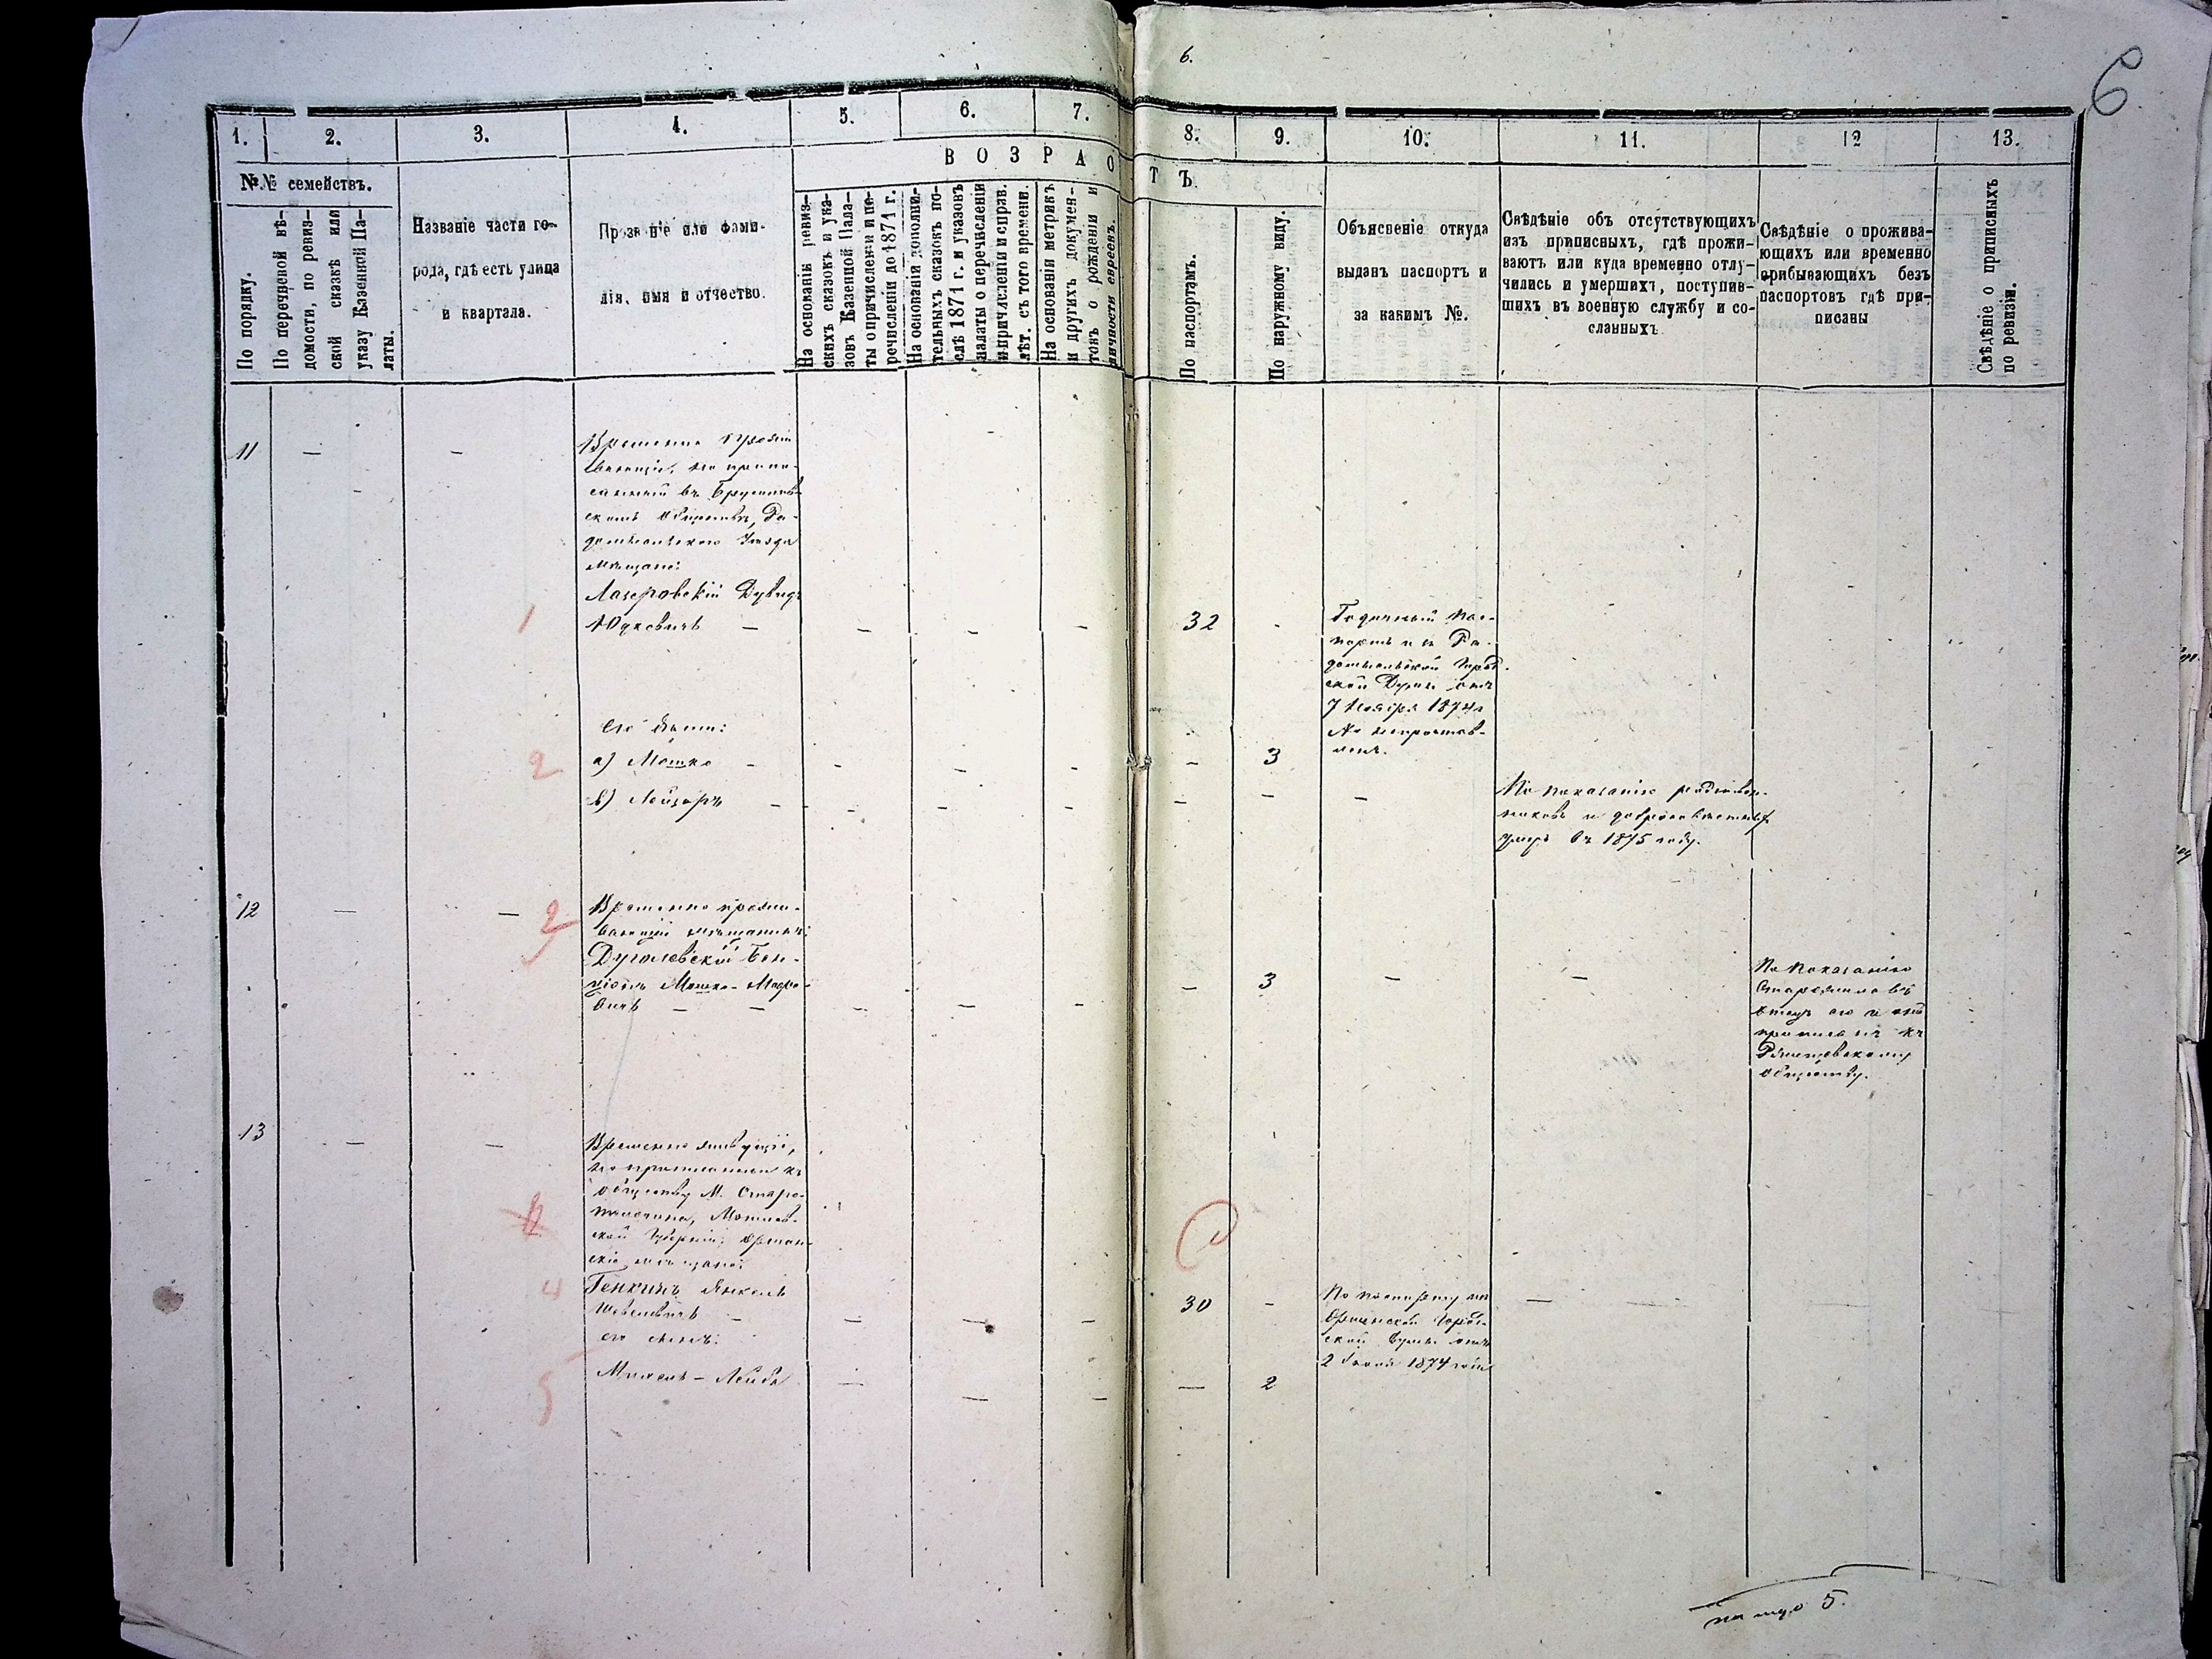 6.
6
1.
2.
3.
4.
5.
6.
7.
8.
9.
10.
11.
12
13.
№№ семействъ.
ВОЗРАСТЪ.
По порядку.
По перечневой вѣ-
домости, по ревиз-
ской сказкѣ или
указу Казенной Па-
латы.
Названіе части го-
рода, гдѣ есть улица
и квартала.
Прозвніе или фами-
лія, имя и отчество.
На основаніи ревиз-
скихъ сказокъ и ука-
зовъ Казенной Пала-
ты о причисленіи и пе-
речисленіи до 1871 г.
На основаніи дополни-
тельныхъ сказокъ по-
слѣ 1871 г. и указовъ
палаты о перечисленіи
и причисленіи и справ.
лѣт. съ того времени.
На основаніи метрикъ
и другихъ докумен-
товъ о рожденіи и
личности евреевъ.
По паспортамъ.
По наружному виду.
Объясненіе откуда
выданъ паспортъ и
за какимъ №.
Свѣдѣніе объ отсутствующихъ
изъ приписныхъ, гдѣ прожи-
ваютъ или куда временно отлу-
чились и умершихъ, поступив-
шихъ въ военную службу и со-
сланныхъ
Свѣдѣніе о прожива-
ющихъ или временно
прибывающихъ безъ
паспортовъ гдѣ при-
писаны
Свѣдѣніе о приписныхъ
по ревизіи.
11 — —
Временно прожи-
вающіе, но припи-
санный въ
скомъ обществѣ, Ра-
домысльскаго Уѣзда
мѣщане:
Лазеровскій Дувидъ
1 Юдковичъ — — — — 32 -
Годичный пас-
портъ изъ Ра-
домысльской Город-
ской Думы отъ
7 Ноября 1874 г
№ непроставо-
ленъ.
Его дѣти:
2 а) Мошко - - - - - 3
в) Лейзоръ - - - - - - -
По показанію
и добросовѣстныхъ
умеръ въ 1875 году.
12 — — 2
Временно прожи-
вающій мѣщанинъ:
Бен-
ціонъ Мошко-
вичъ — — — — — — 3 — —
По показанію
отецъ его и онъ
приписанъ къ
Ржищевскому
обществу.
13 — —
Временно живущіе,
но приписаны къ
обществу М. Старо-
Могилев-
ской Губерніи,
скіе мѣщане:
4 Генкинъ Янкель
— — — — 30 - —
его сынъ:
По паспорту изъ
Оршанской Город-
ской Думы отъ
2 1874 года
5 — Лейба — — — — 2
5.